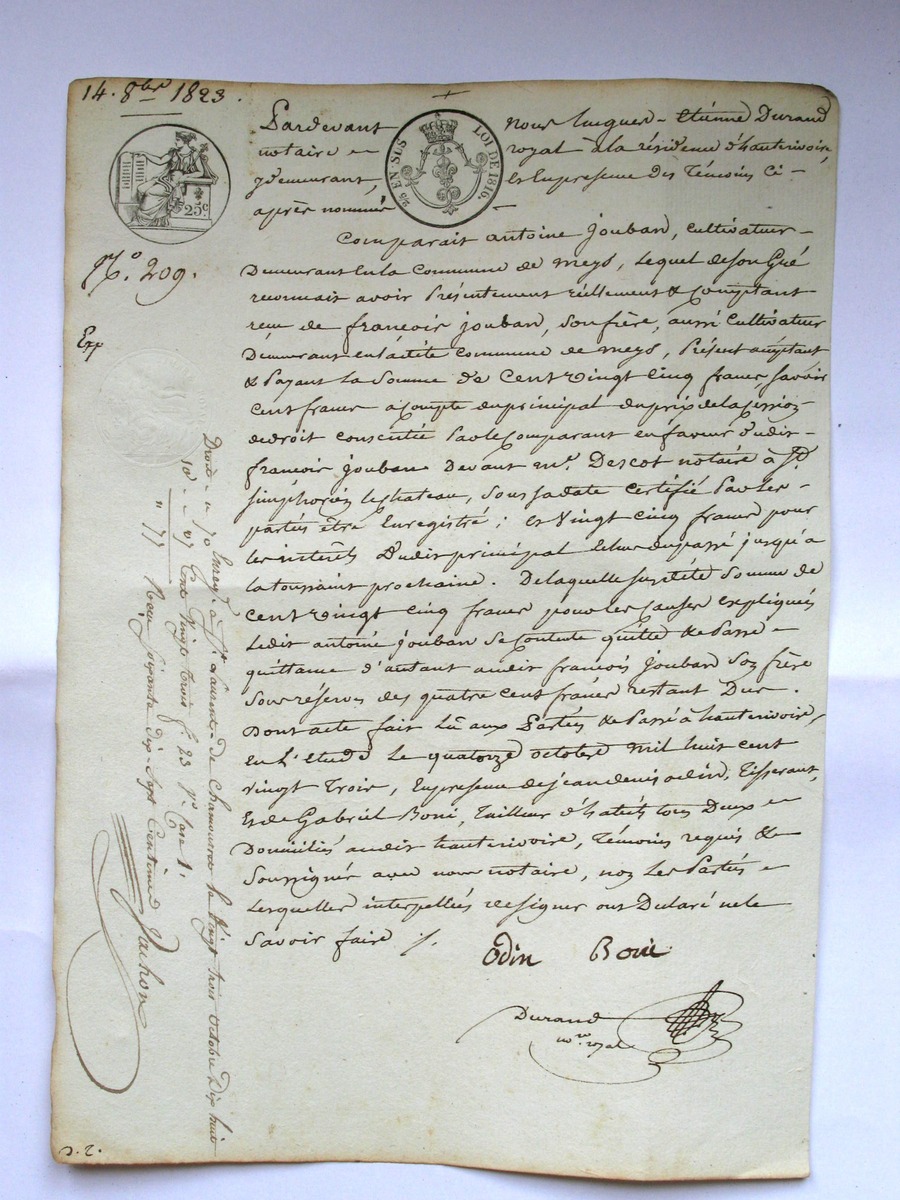 14. 8bre 1823.
25c
25 EN SUS LOI DE 1816.
No. 209.
Exp
Pardevant nous Jucques-Etienne Durand
notaire royal à la résidence d'hauterivoire,
y demeurant, et en presence des Témoins Ci-
après nommés
Comparait antoine jouban, Cultivateur
Demeurant En la Commune de meys, lequel de son Gré
reconnait avoir Présentement réellement & Comptant
reçu de françois jouban, son frère, aussi Cultivateur
Demeurant en laditte Commune de meys, Présent acceptant
& Payant La Somme de Cent vingt cinq francs, Savoir
Cent francs acompte du principal du prix de la Cession
de droit consentie Par le Comparant en faveur dudit
françois jouban devant me. Descot notaire à St.
Simphorien le chateau, Sous sa date certifié Par les
parties être Enregistré; et Vingt cinq francs pour
les intérêts Dudit principal Echus du passé jusqu'à
la toussaint prochaine. De laquelle susditte Somme de
Cent vingt Cinq francs pour les Causes expliquées
Ledit antoine jouban se Contente quitte & Passe
quittance d'autant audit françois jouban son frère
Sous réserves des quatre Cent francs restant Dus.
Dont acte fait Lu aux Parties & Passé à hauterivoire,
En l'étude Le quatorze octobre mil huit cent
vingt Trois, En presence de jean denis odin, Tisserant,
Et de Gabriel Boni, Tailleur d'habits tous Deux
Domiciliés audit hauterivoire, Témoins requis &
Soussignés avec nous notaire, non les Parties
Lesquelles interpellées de signer ont Déclaré ne le
Savoir faire ./.
Odin Boni
Durand
nore. royal
Enregé. à St. Laurent de Chamousset le vingt trois octobre Dix huit
Cent Vingt Trois f. 23 Ro. Case 1.
Reçu soixante Dix-Sept Centimes
Vachon
Droit - " 70
10e - " 07
" 77